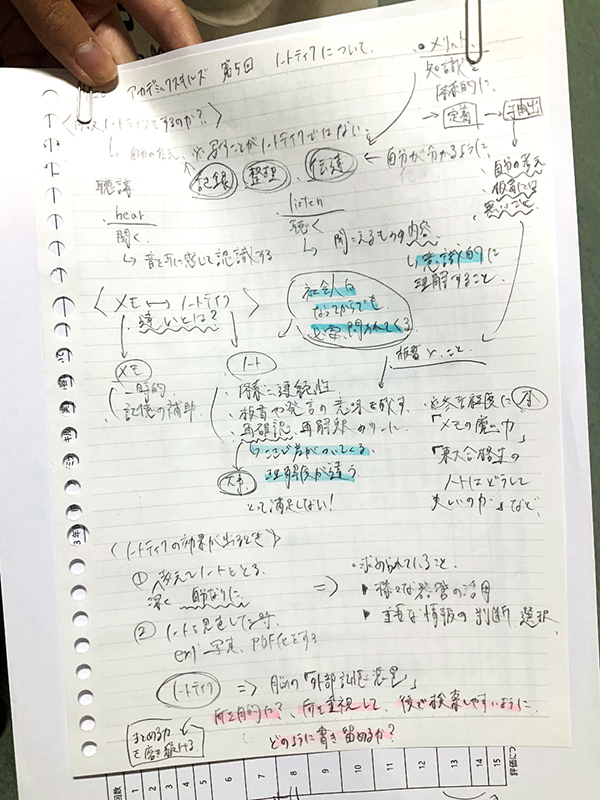 アカデミックスキルズ 第5回 ノートテイクについて
・メリット
知識を
体系的に
→ 定着 → 抽出
ノートテイクをするのか?>
自分の考え 写すことがノートテイクではない
記録 整理 伝達 ← 自分が分かるように
自分の考え
板書には
無いこと
聴講
・hear
聞く
↳ 音を耳に感じて認識する
・listen
聴く
↳ 聞こえるものの内容
↳意識的に
理解すること
<メモ ↔ ノートテイク>
違いとは?
社会人に
なってからでも
必要、問われてくる
メモ
・一時的
記憶の補助
ノート
・体系に連続性
・板書や発言の意味を
・再確認、再解釈のツール
↳ここで差がついてくる
理解度が違う
大事
とって満足しない!
板書
本
「メモの魔力」
「東大合格生の
ノートはどうして
美しいのか」など
<ノートテイクの効果が出るとき>
① 考えてノートをとる
深く
② ノートを見返した時
ex) 写真、PDF化をする
⇒
・求められていること
・様々な器官の活用
・重要な情報の判断、選択
ノートテイク ⇒ 脳の「外部記憶装置」
何を目的に?、何を重視して、後で検索しやすいように
どのように書き留めるか?
まとめる力
を磨き続ける
回数 1 2 3 4 5 6 7 8 9 10 11 12 13 14 15 評価につ